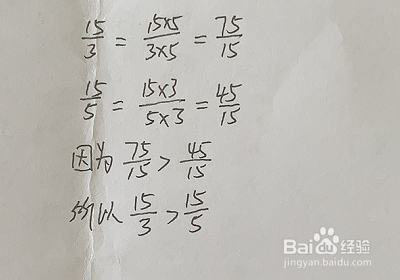 15/3 = 15×5/3×5 = 75/15
15/5 = 15×3/5×3 = 45/15
因为 75/15 > 45/15
所以 15/3 > 15/5
Baidu 经验
jingyan.baidu.com